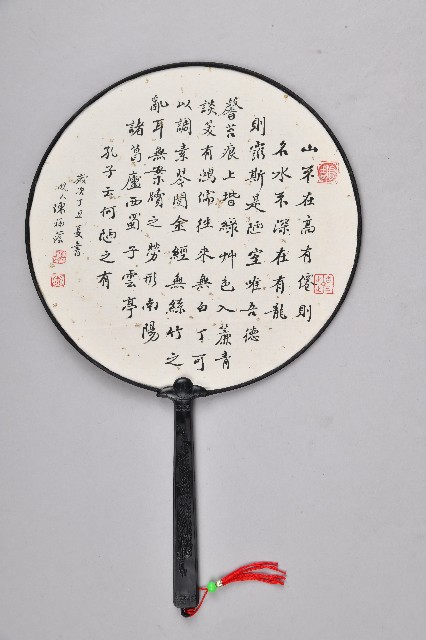 山不在高有僊則
名水不深在有龍
則靈斯是陋室唯吾德
馨苔痕上堦綠艸色入簾青
談笑有鴻儒往來無白丁可
以調素琴閱金經無絲竹之
亂耳無案牘之勞形南陽
諸葛廬西蜀子雲亭
孔子云何陋之有
歲次丁丑夏書
人陳福蔭